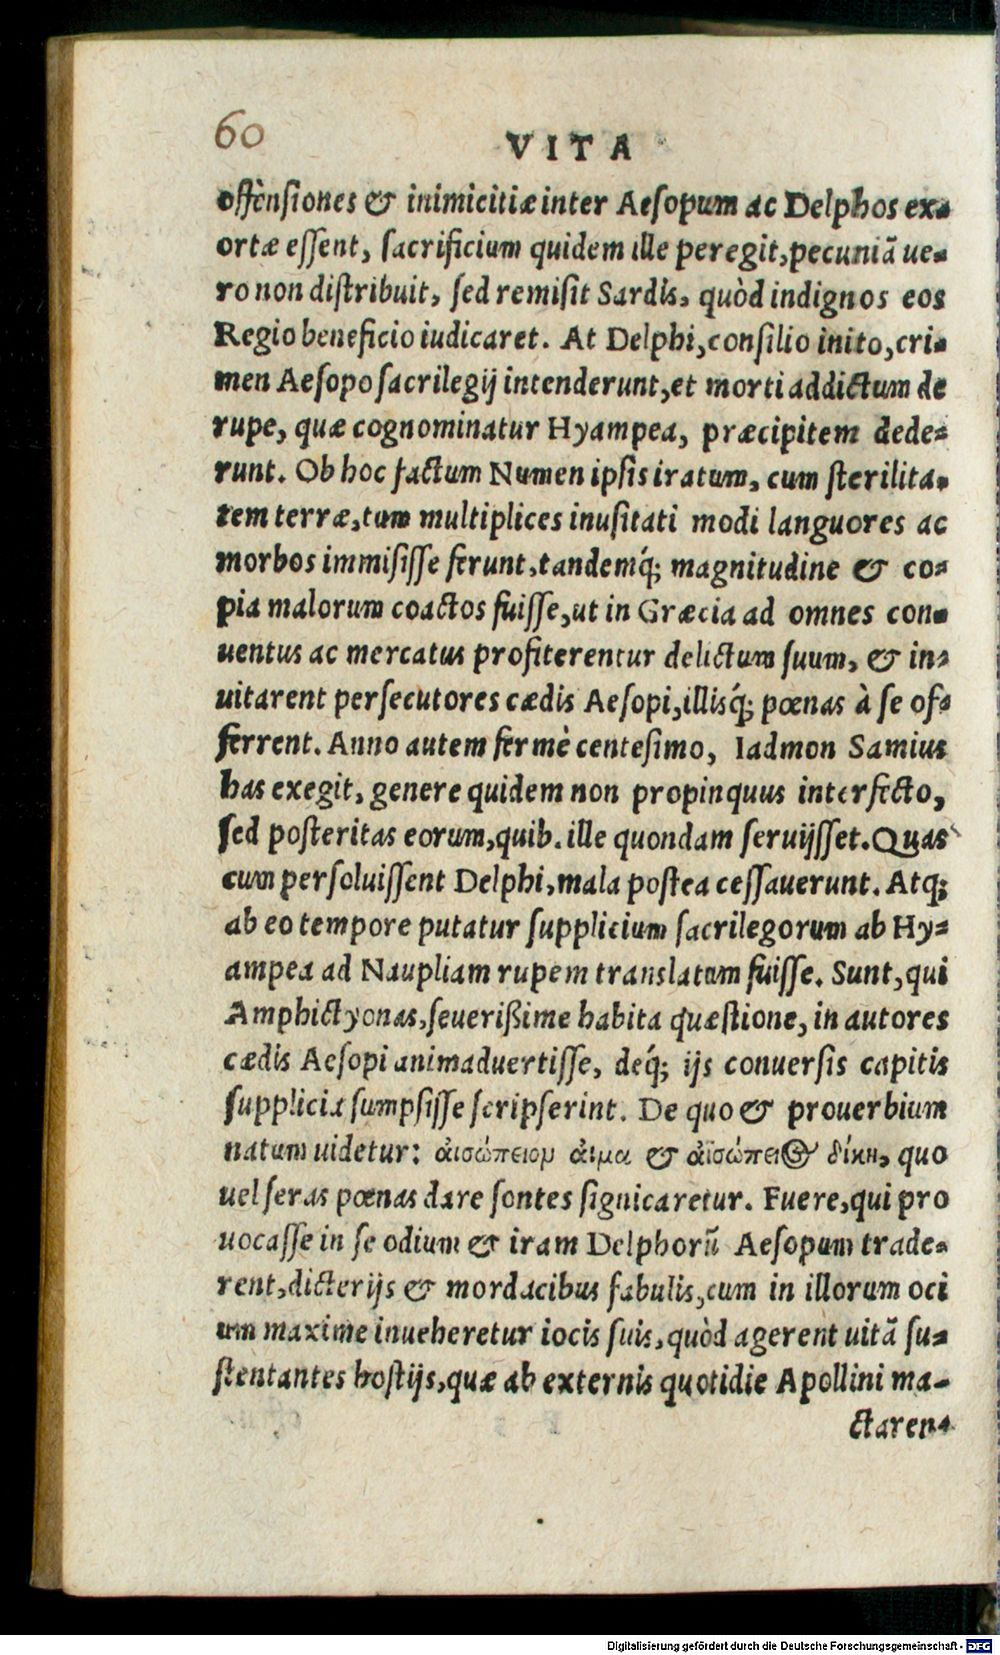 60
VITA
offensiones & inimicitiæ inter Aesopum ac Delphos ex-
ortæ essent, sacrificium quidem ille peregit, pecuniã ue-
ro non distribuit, sed remisit Sardis, quòd indignos eos
Regio beneficio iudicaret. At Delphi, consilio inito, cri-
men Aesopo sacrilegij intenderunt, et morti addictum de
rupe, quæ cognominatur Hyampea, præcipitem dede-
runt. Ob hoc factum Numen ipsis iratum, cum sterilita-
tem terræ, tum multiplices inusitati modi languores ac
morbos immisisse ferunt, tandemq́; magnitudine & co-
pia malorum coactos fuisse, ut in Græcia ad omnes con-
uentus ac mercatus profiterentur delictum suum, & in-
uitarent persecutores cædis Aesopi, illisq́; pœnas à se of-
ferrent. Anno autem fermè centesimo, Iadmon Samius
has exegit, genere quidem non propinquus interfecto,
sed posteritas eorum, quib. ille quondam seruijsset. Quas
cum persoluissent Delphi, mala postea cessauerunt. Atq;
ab eo tempore putatur supplicium sacrilegorum ab Hy-
ampea ad Naupliam rupem translatum fuisse. Sunt, qui
Amphictyonas, seuerißime habita quæstione, in autores
cædis Aesopi animaduertisse, deq́; ijs conuersis capitis
supplicia sumpsisse scripserint. De quo & prouerbium
natum uidetur: ἀισώπειον ἀιμα & ἀισώπειος δίκη, quo
uel seras pœnas dare sontes signicaretur. Fuere, qui pro
uocasse in se odium & iram Delphorũ Aesopum trade-
rent, dicterijs & mordacibus fabulis, cum in illorum oci
um maxime inueheretur iocis suis, quòd agerent uitã su-
stentantes hostijs, quæ ab externis quotidie Apollini ma-
ctaren-
Digitalisierung gefördert durch die Deutsche Forschungsgemeinschaft - DFG